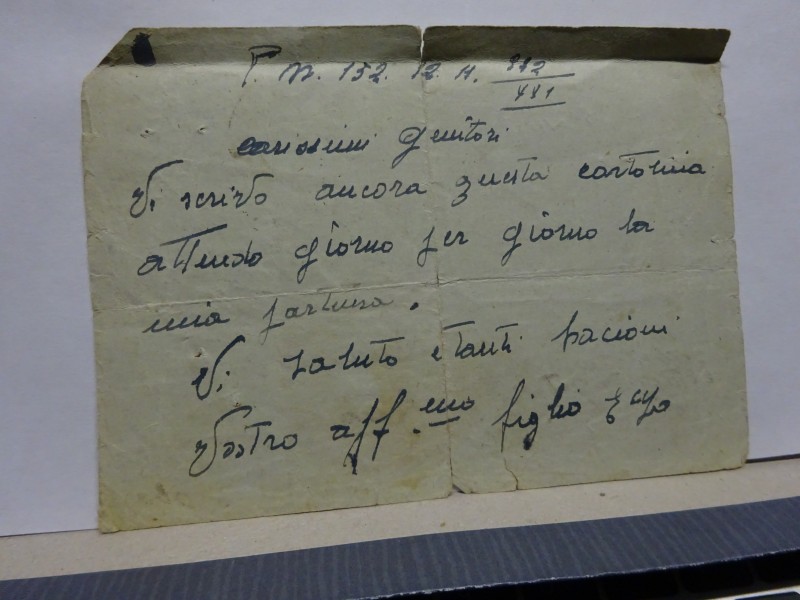 P. M. 132. 12. 4. 942
441
carissimi genitori
Vi scrivo ancora questa cartolina
attendo giorno per giorno la
mia partenza.
Vi saluto e tanti bacioni
Vostro aff.mo figlio